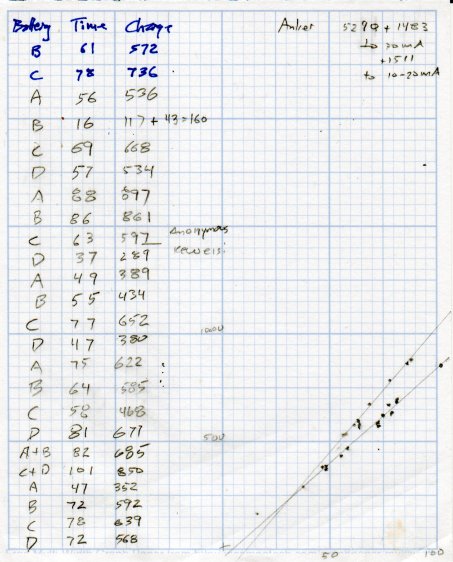 Battery Time Charge
B 61 572
C 78 736
A 56 536
B 16 117 + 43 = 160
C 69 668
D 57 534
A 88 697
B 86 861
C 63 597
D 37 289
A 49 389
B 55 434
C 77 652
D 47 380
A 75 622
B 64 585
C 58 468
D 81 671
A+B 82 685
C+D 101 850
A 47 352
B 72 592
C 78 639
D 72 568
5290 + 1483
to 20mA
+1511
to 10-20mA
Anonymous
1000
500
50
100